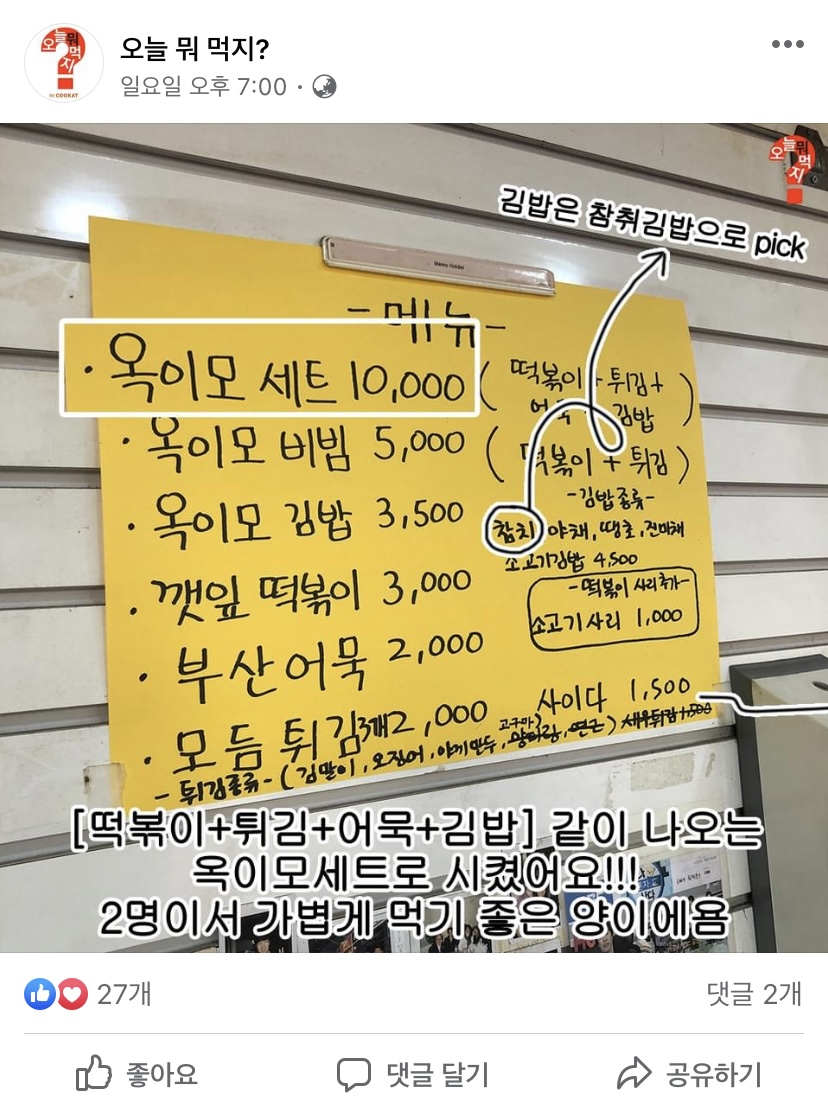 오늘 뭐 먹지?
일요일 오후 7:00 ·
오늘 뭐 먹지
by COOKAT
오늘 뭐 먹지
김밥은 참취김밥으로 pick
Memo Holder
-메뉴-
· 옥이모 세트 10,000 (떡볶이+튀김+
어묵+김밥)
· 옥이모 비빔 5,000 (떡볶이+튀김)
-김밥종류-
· 옥이모 김밥 3,500 참치 야채, 땡초, 진미채
소고기김밥 4,500
· 깻잎 떡볶이 3,000
-떡볶이 사리추가-
소고기사리 1,000
· 부산어묵 2,000
사이다 1,500
· 모듬 튀김 3개 2,000
고구마
-튀김종류- (김말이, 오징어, 야끼만두, 연근) 새우튀김 1,500
[떡볶이+튀김+어묵+김밥] 같이 나오는
옥이모세트로 시켰어요!!!
2명이서 가볍게 먹기 좋은 양이에욤
27개
댓글 2개
좋아요
댓글 달기
공유하기